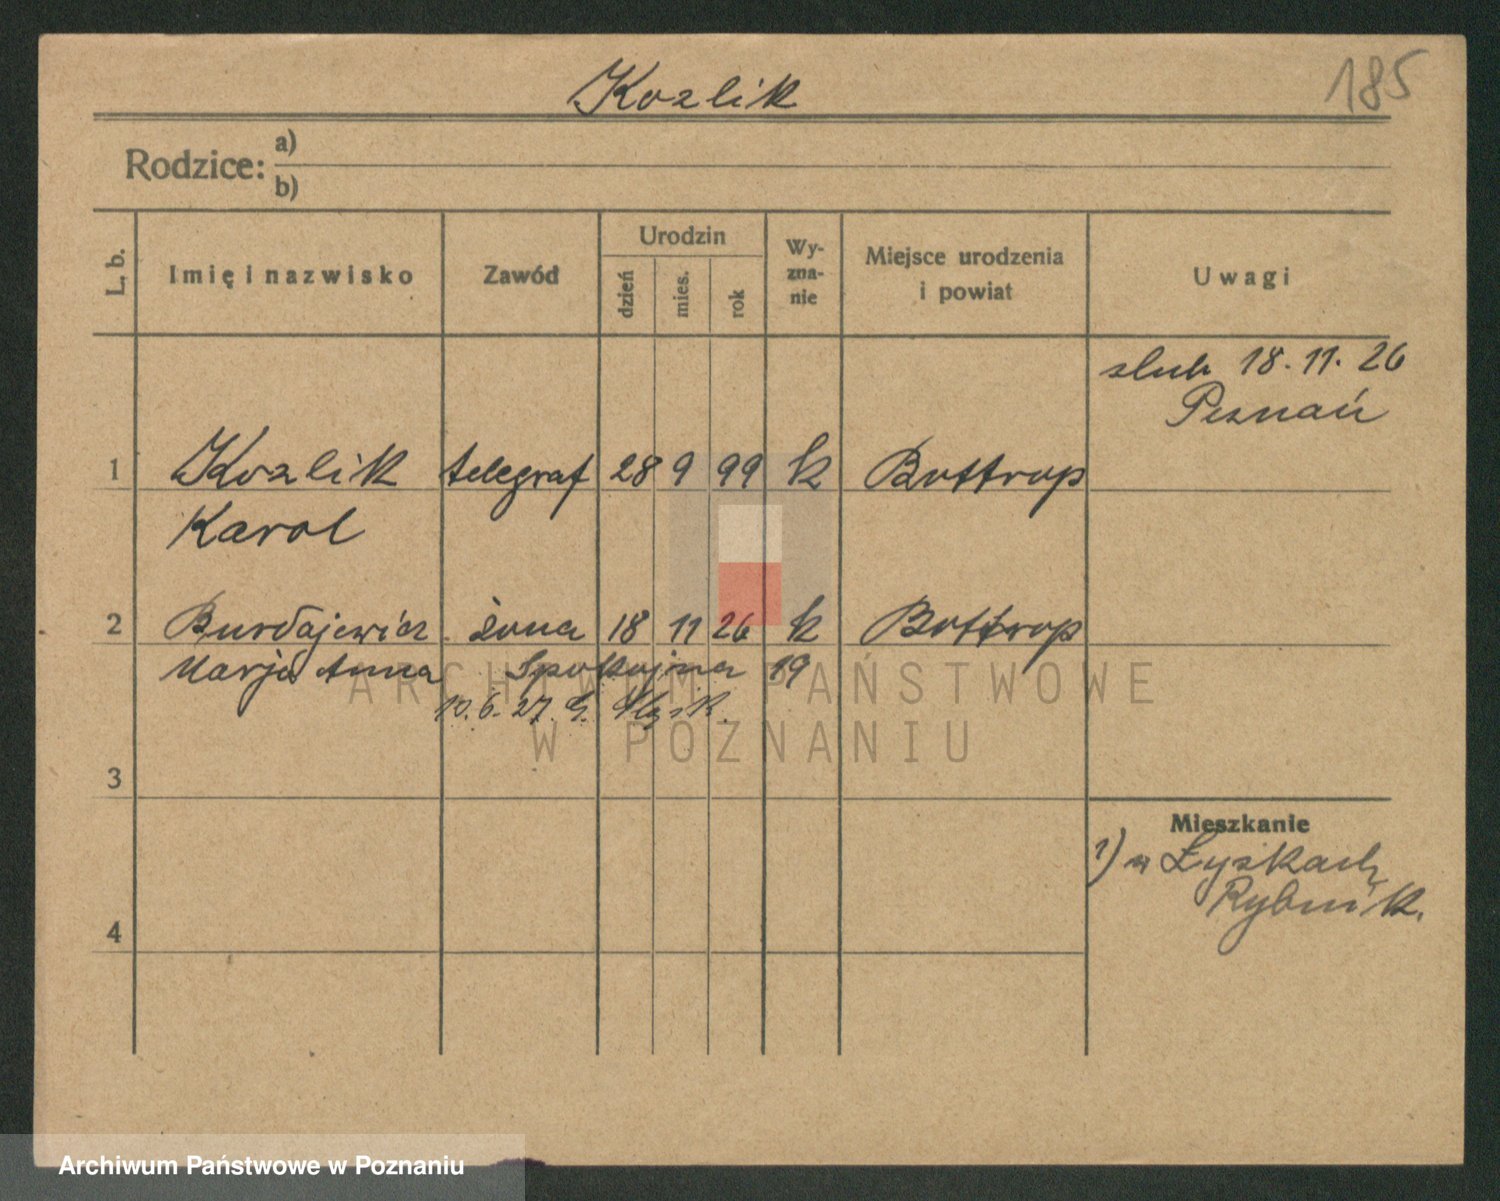 Kozlik
185
Rodzice: a)
b)
L. b. Imię i nazwisko Zawód Urodzin dzień mies. rok Wy-zna-nie Miejsce urodzenia i powiat Uwagi
ślub 18. 11. 26
Poznań
1 Kozlik telegraf 28 9 99 k Bottrop
Karol
2 Burdajewicz żona 18 11 26 k Bottrop
Marja Anna Spokojna 19
10. 6. 27. G. Śląsk.
3
Mieszkanie
1) w Łyskach
Rybnik.
4
ARCHIWUM PAŃSTWOWE
W POZNANIU
Archiwum Państwowe w Poznaniu